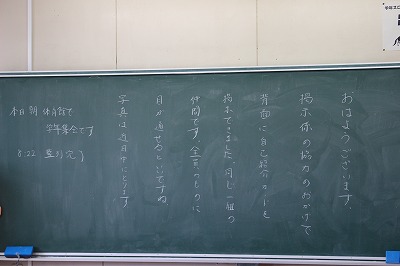 おはようございます。
掲示係の協力のおかげで
背面に自己紹介カードを
掲示できました。同じ一組の
仲間です。全員のものに
目が通せるといいですね。
写真は近日中にとります
本日 朝 体育館で
学年集会です
8:22 整列完了